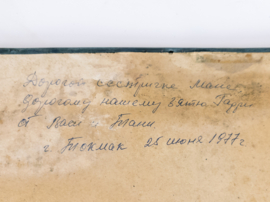 Дорогой сестричке Мане
дорогому нашему зятю Гарри
от Васи и Тани
г. Токмак 25 июня 1977 г